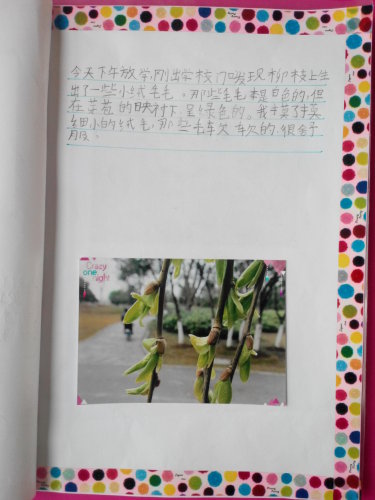 今天下午放学,刚出学校门口发现柳枝上生
出了一些小绒毛毛。那些毛毛本是白色的,但
在菜苞的映衬下呈绿色的。我
细小的绒毛,那些毛软软的,很舒
服。
Crazy
one
night